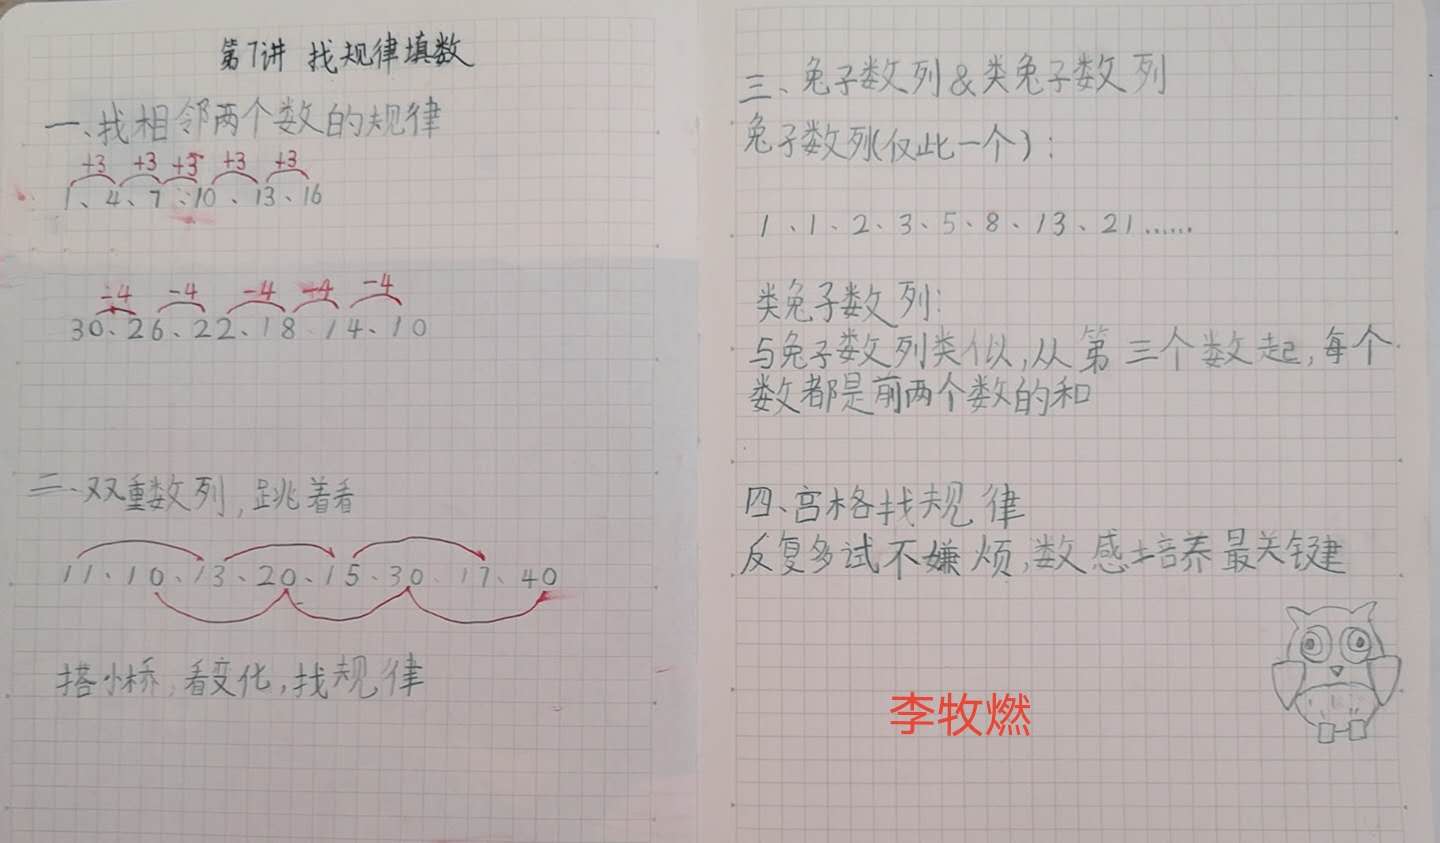 第7讲 找规律填数
一、找相邻两个数的规律
+3 +3 +3 +3 +3
1、4、7、10、13、16
-4 -4 -4 -4 -4
30、26、22、18、14、10
二、双重数列,跳着看
11、10、13、20、15、30、17、40
搭小桥,看变化,找规律
三、兔子数列&类兔子数列
兔子数列(仅此一个):
1、1、2、3、5、8、13、21......
类兔子数列:
与兔子数列类似,从第三个数起,每个
数都是前两个数的和
四、宫格找规律
反复多试不嫌烦,数感培养最关键
李牧燃